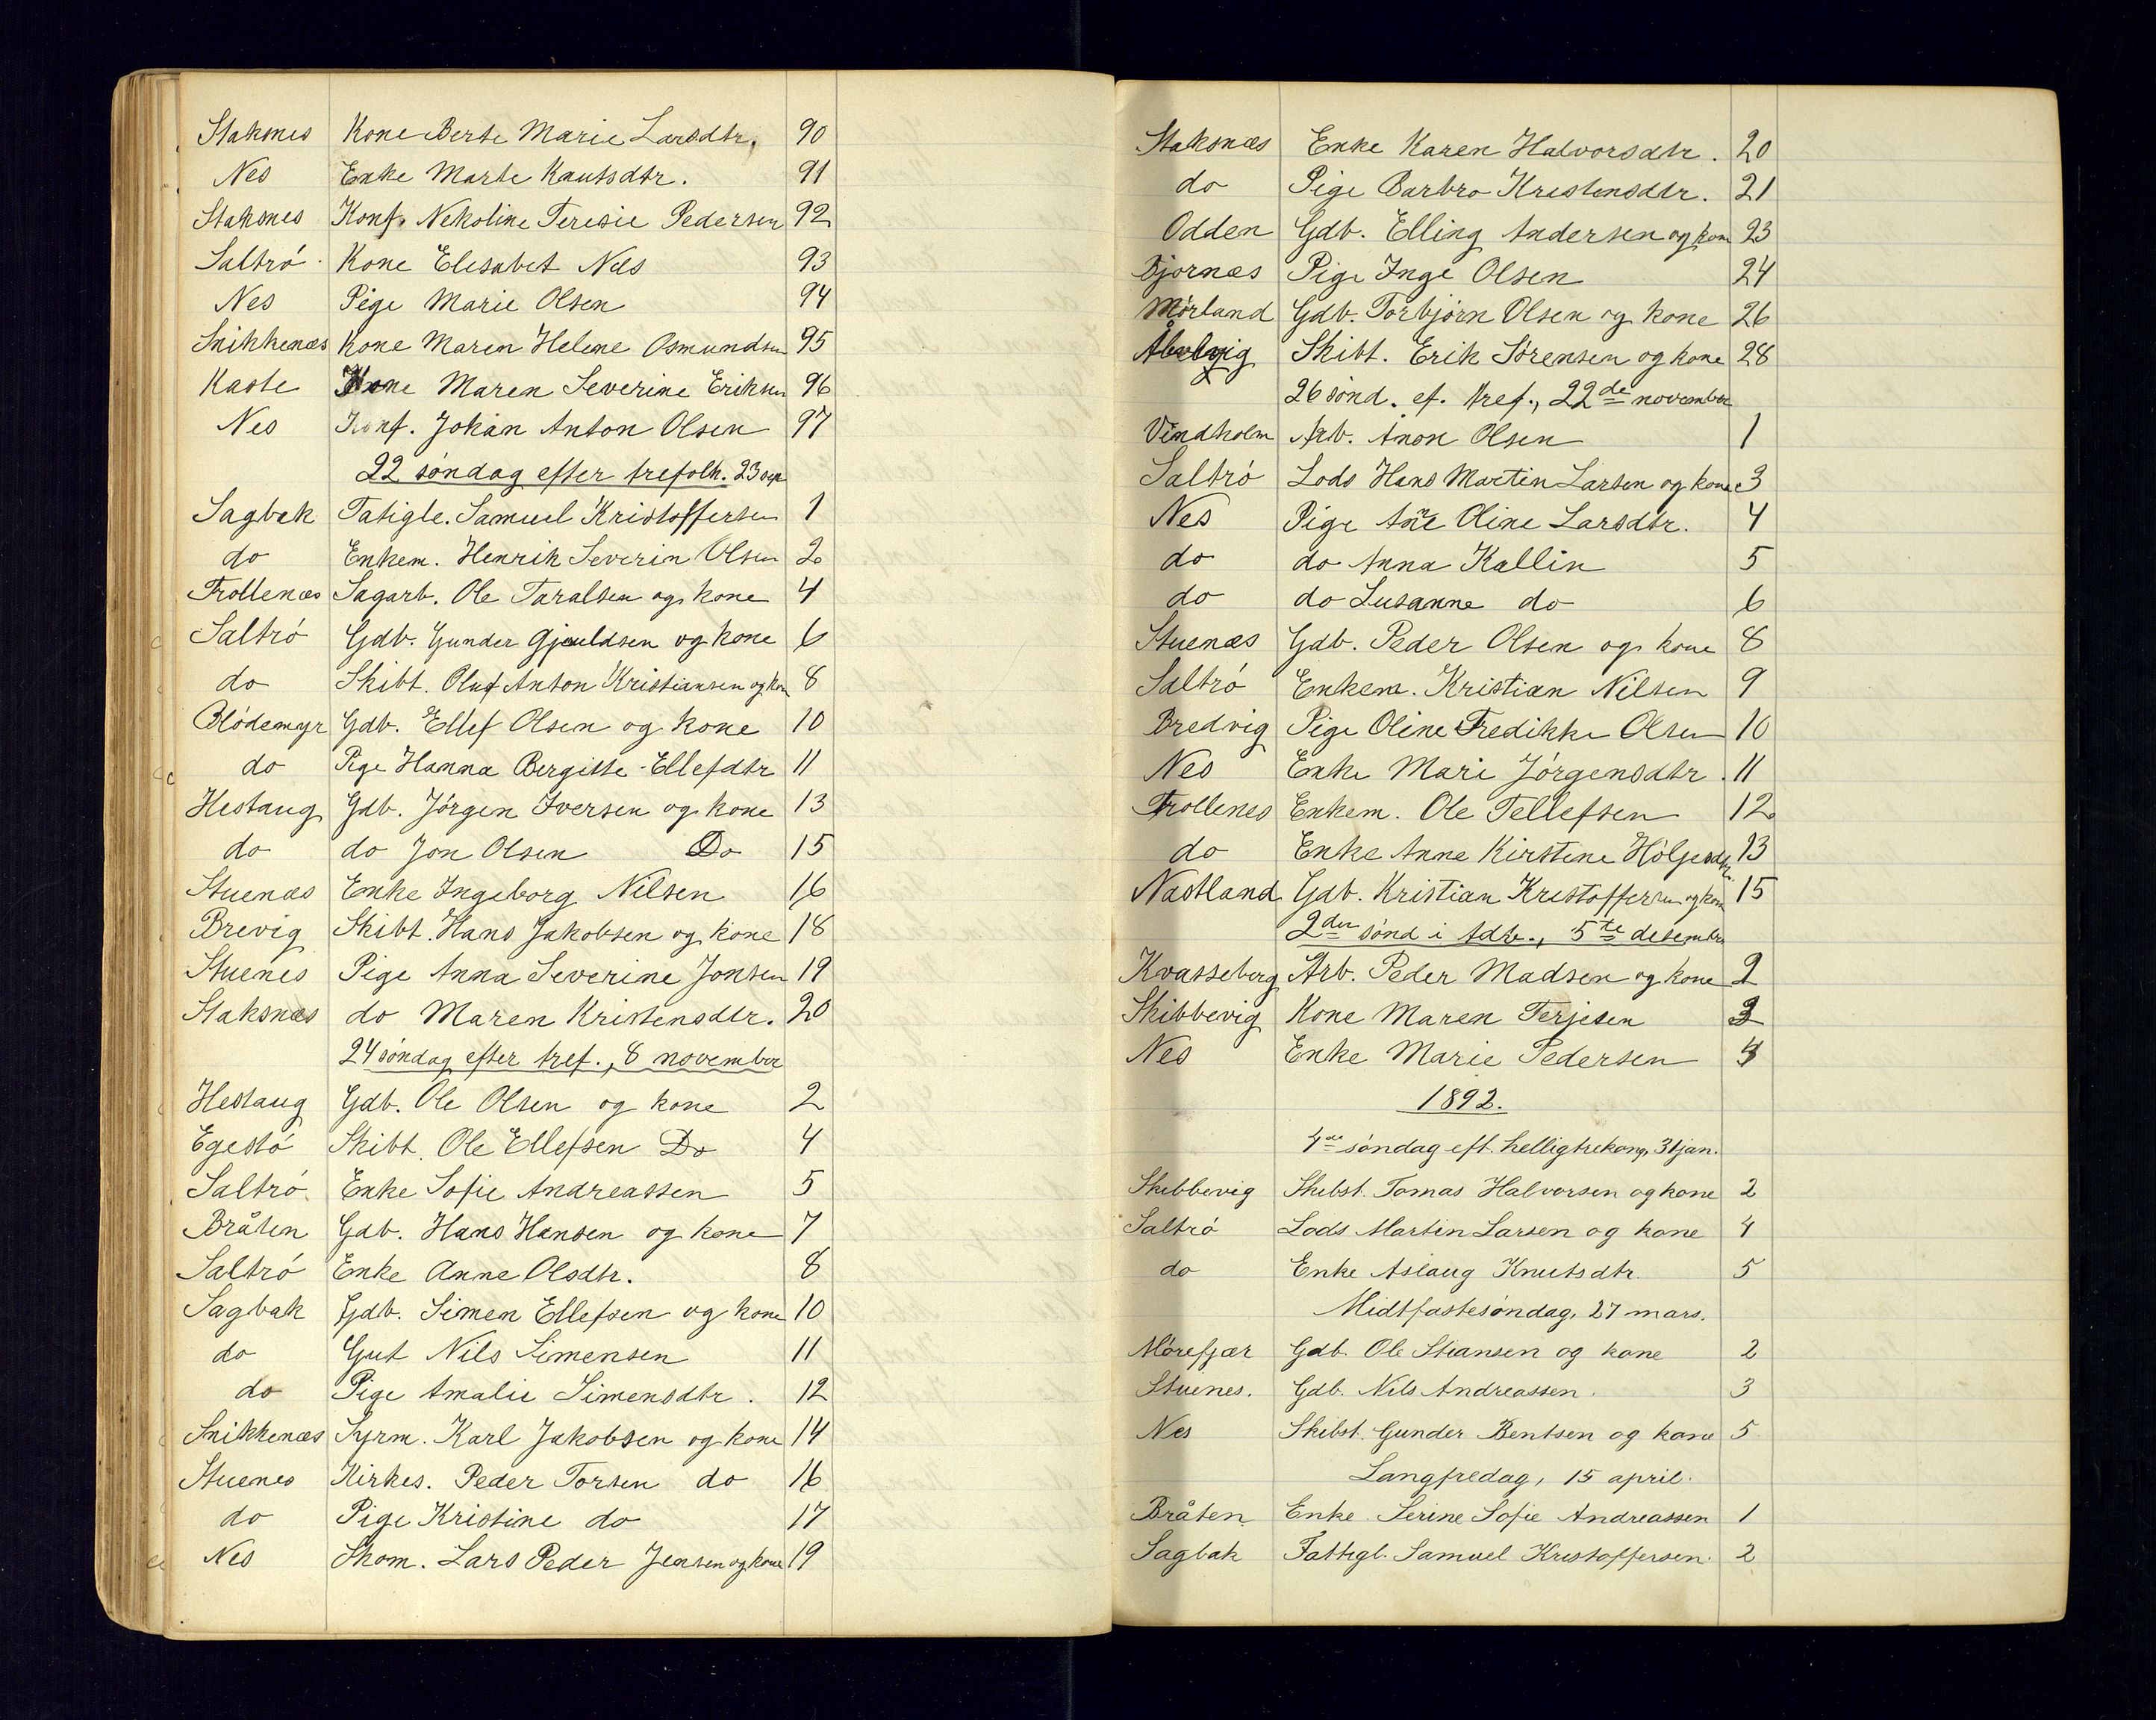 Staksnes Kone Berte Marie Larsdtr. 90
Nes Enke Marte Knutsdtr. 91
Staksnes Konf. Nekoline Teresie Pedersen 92
Saltrö Kone Elesabet Nels 93
Nes Pige Marie Olsen 94
Snikkenæs Kone Maren Helene Osmundsen 95
Kaste Kone Maren Severine Eriksen 96
Nes Konf. Johan Anton Olsen 97
22 söndag efter trefolh. 23
Sagbak Fatigle. Samuel Kristoffersen 1
do Enkem. Henrik Severin Olsen 2
Trollenæs Sagarb. Ole Taralsen og kone 4
Saltrö Gdb. Gunder Gjeuldsen og kone 6
do Skibt. Oluf Anton Kristiansen og kon 8
Blödemyr Gdb. Ellef Olsen og kone 10
do Pige Hanna Bergitte Ellefdtr 11
Hestaug Gdb. Jörgen Iversen og kone 13
do do Jon Olsen Do 15
Stuenæs Enke Ingeborg Nilsen 16
Brevig Skibt. Hans Jakobsen og kone 18
Stuenes Pige Anna Severine Jonsen 19
Staksnæs do Maren Kristensdtr. 20
24 söndag efter tref., 8 november
Hestaug Gdb. Ole Olsen og kone 2
Egestö Skibt. Ole Ellefsen Do 4
Saltrö Enke Sofie Andreassen 5
Bråten Gdb. Hans Hansen og kone 7
Saltrö Enke Anne Olsdtr. 8
Sagbak Gdb. Simen Ellefsen og kone 10
do Gut Nils Simensen 11
do Pige Amalie Simensdtr. 12
Snikkenæs Syrm. Karl Jakobsen og kone 14
Stuenes Kirkes. Peder Torsen do 16
do Pige Kristine do 17
Nes Skom. Lars Peder Jensen og kone 19
Staksnæs Enke Karen Halvorsdtr. 20
do Pige Barbro Krestensdtr. 21
Odden Gdb. Elling Andersen og kon 23
Bjornæs Pige Inge Olsen 24
Mörland Gdb. Torbjörn Olsen og kone 26
Skibt. Erik Sörensen og kone 28
26 sönd. ef. tref., 22de november
Vindholm Arb. Anon Olsen 1
Saltrö Lods Hans Martin Larsen og kone 3
Nes Pige Anne Oline Larsdtr. 4
do do Anna Kallin 5
do do Susanne do 6
Stuenæs Gdb. Peder Olsen og kone 8
Saltrö Enkem. Kristian Nilsen 9
Bredvig Pige Oline Fredikke Olsen 10
Nes Enke Mari Jörgensdtr. 11
Trollenes Enkem. Ole Tellefsen 12
do Enke Anne Kirstene Höljesdtr. 13
Nastland Gdb. Kristian Kristoffersen og kon 15
2den sönd i Adv., 5te desember
Kvasseberg Arb. Peder Madsen og kone 2
Skibbevig Kone Maren Terjesen 3
Nes Enke Marie Pedersen 4
1892.
4de söndag eft. helligtrekong, 31 jan.
Skebbevig Skibst. Tomas Halvorsen og kone 2
Saltrö Lods Martin Larsen og kone 4
do Enke Aslaug Knutsdtr. 5
Midtfastesöndag, 27 mars.
Mörefjær Gdb. Ole Steansen og kone 2
Stuenes. Gdb. Nils Andreassen. 3
Nes Skibst. Gunder Bentsen og kone 5
Langfredag, 15 april.
Bråten Enke Serine Sofie Andreassen 1
Sagbak Fattigl. Samuel Kristoffersen. 2